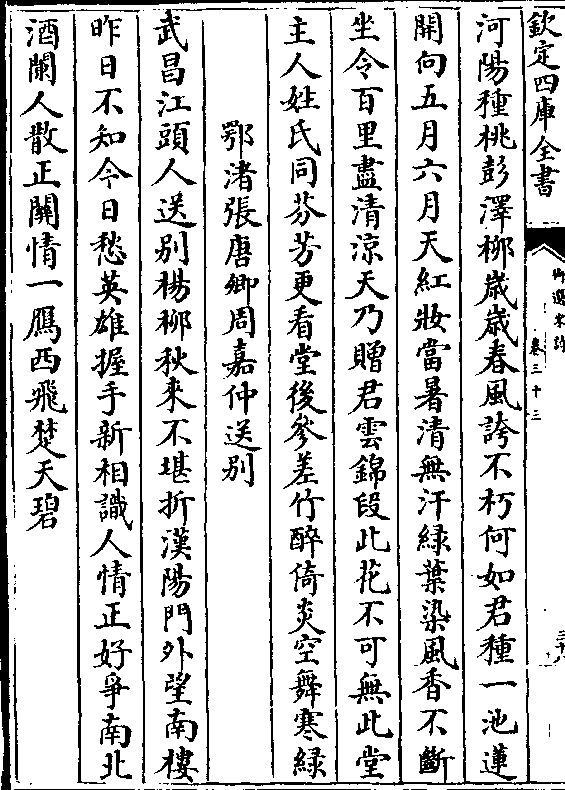 欽定四庫全書
御選宋詩
卷三十三
河陽種桃彭澤柳歲歲春風誇不朽何如君種一池蓮
開向五月六月天紅妝當暑清無汗綠葉染風香不斷
坐令百里盡清涼天乃贈君雲錦段此花不可無此堂
主人姓氏同芬芳更看堂後參差竹醉倚炎空舞寒綠
鄂渚張唐卿周嘉仲送別
武昌江頭人送別楊柳秋來不堪折漢陽門外望南樓
昨日不知今日愁英雄握手新相識人情正好爭南北
酒闌人散正關情一鴈西飛楚天碧